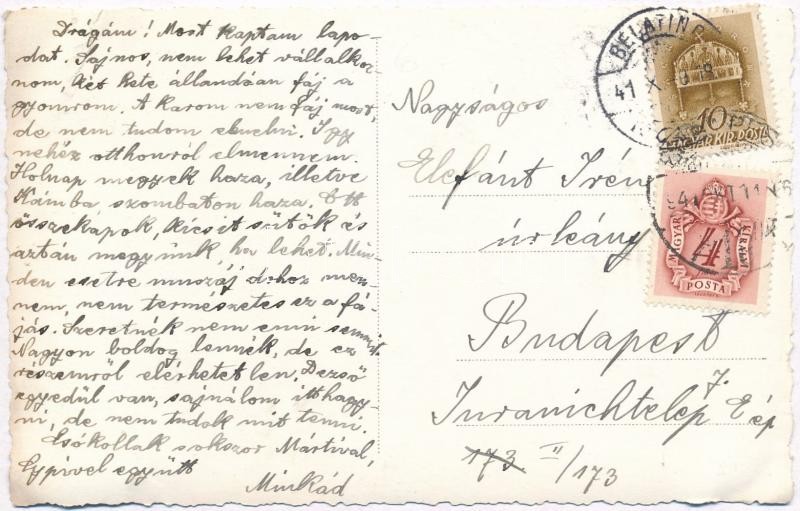 Drágám! Most kaptam lapo-
dat. Sajnos, nem lehet vállalkoz-
nom, két hete állandóan fáj a
gyomrom. A karom nem fáj most,
de nem tudom elnelni. Így
nehéz otthonról elmennem.
Holnap megyek haza, illetve
Kámba szombaton haza. Ott
összekapok, kicsit sütök és
aztán megyünk, ha lehet. Min-
den esetre muszáj drhoz men-
nem, nem természetes ez a fá-
jás. Szeretnék nem enni semmit.
Nagyon boldog lennék, de ez
részemről elérhetetlen. Dezső
egyedül van, sajnálom itthagy-
ni, de nem tudok mit tenni.
Csókollak sokszor Mártival,
együtt
Minkád
Nagyságos
Elefánt Irén
úrleány
Budapest
Juranichtelep J. Ép
173 II/173
BELATINC
41 X
10
MAGYAR KIR. POSTA
941
MAGYAR KIRÁLYI
4
POSTA